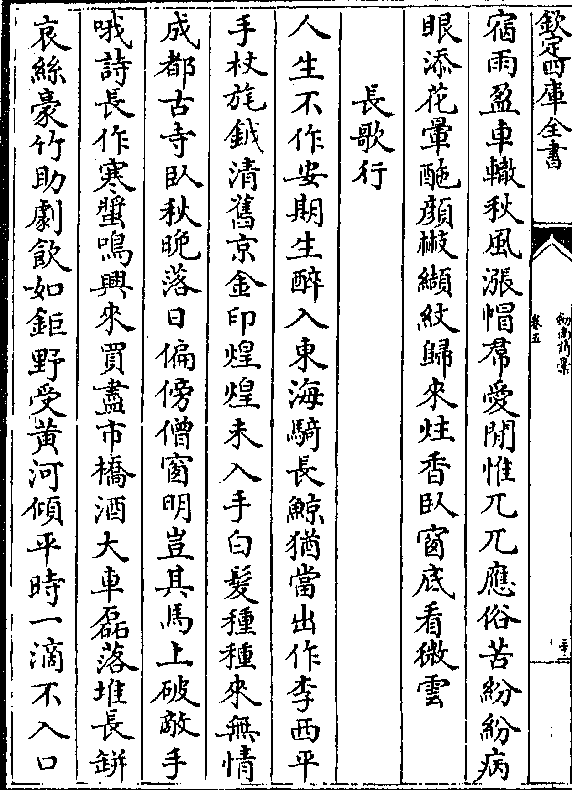 欽定四庫全書
劍南詩集
卷五
宿雨盈車轍秋風漲帽帬愛閒惟兀兀應俗苦紛紛病
眼添花暈酡顔𣗊纈紋歸來炷香臥窗底看微雲
長歌行
人生不作安期生醉入東海騎長鯨猶當出作李西平
手杖旄鉞清舊京金印煌煌未入手白髮種種來無情
成都古寺臥秋晚落日偏傍僧窗明豈其馬上破敵手
哦詩長作寒螿鳴興來買盡市橋酒大車磊落堆長缾
哀絲豪竹助劇飲如鉅野受黃河傾平時一滴不入口